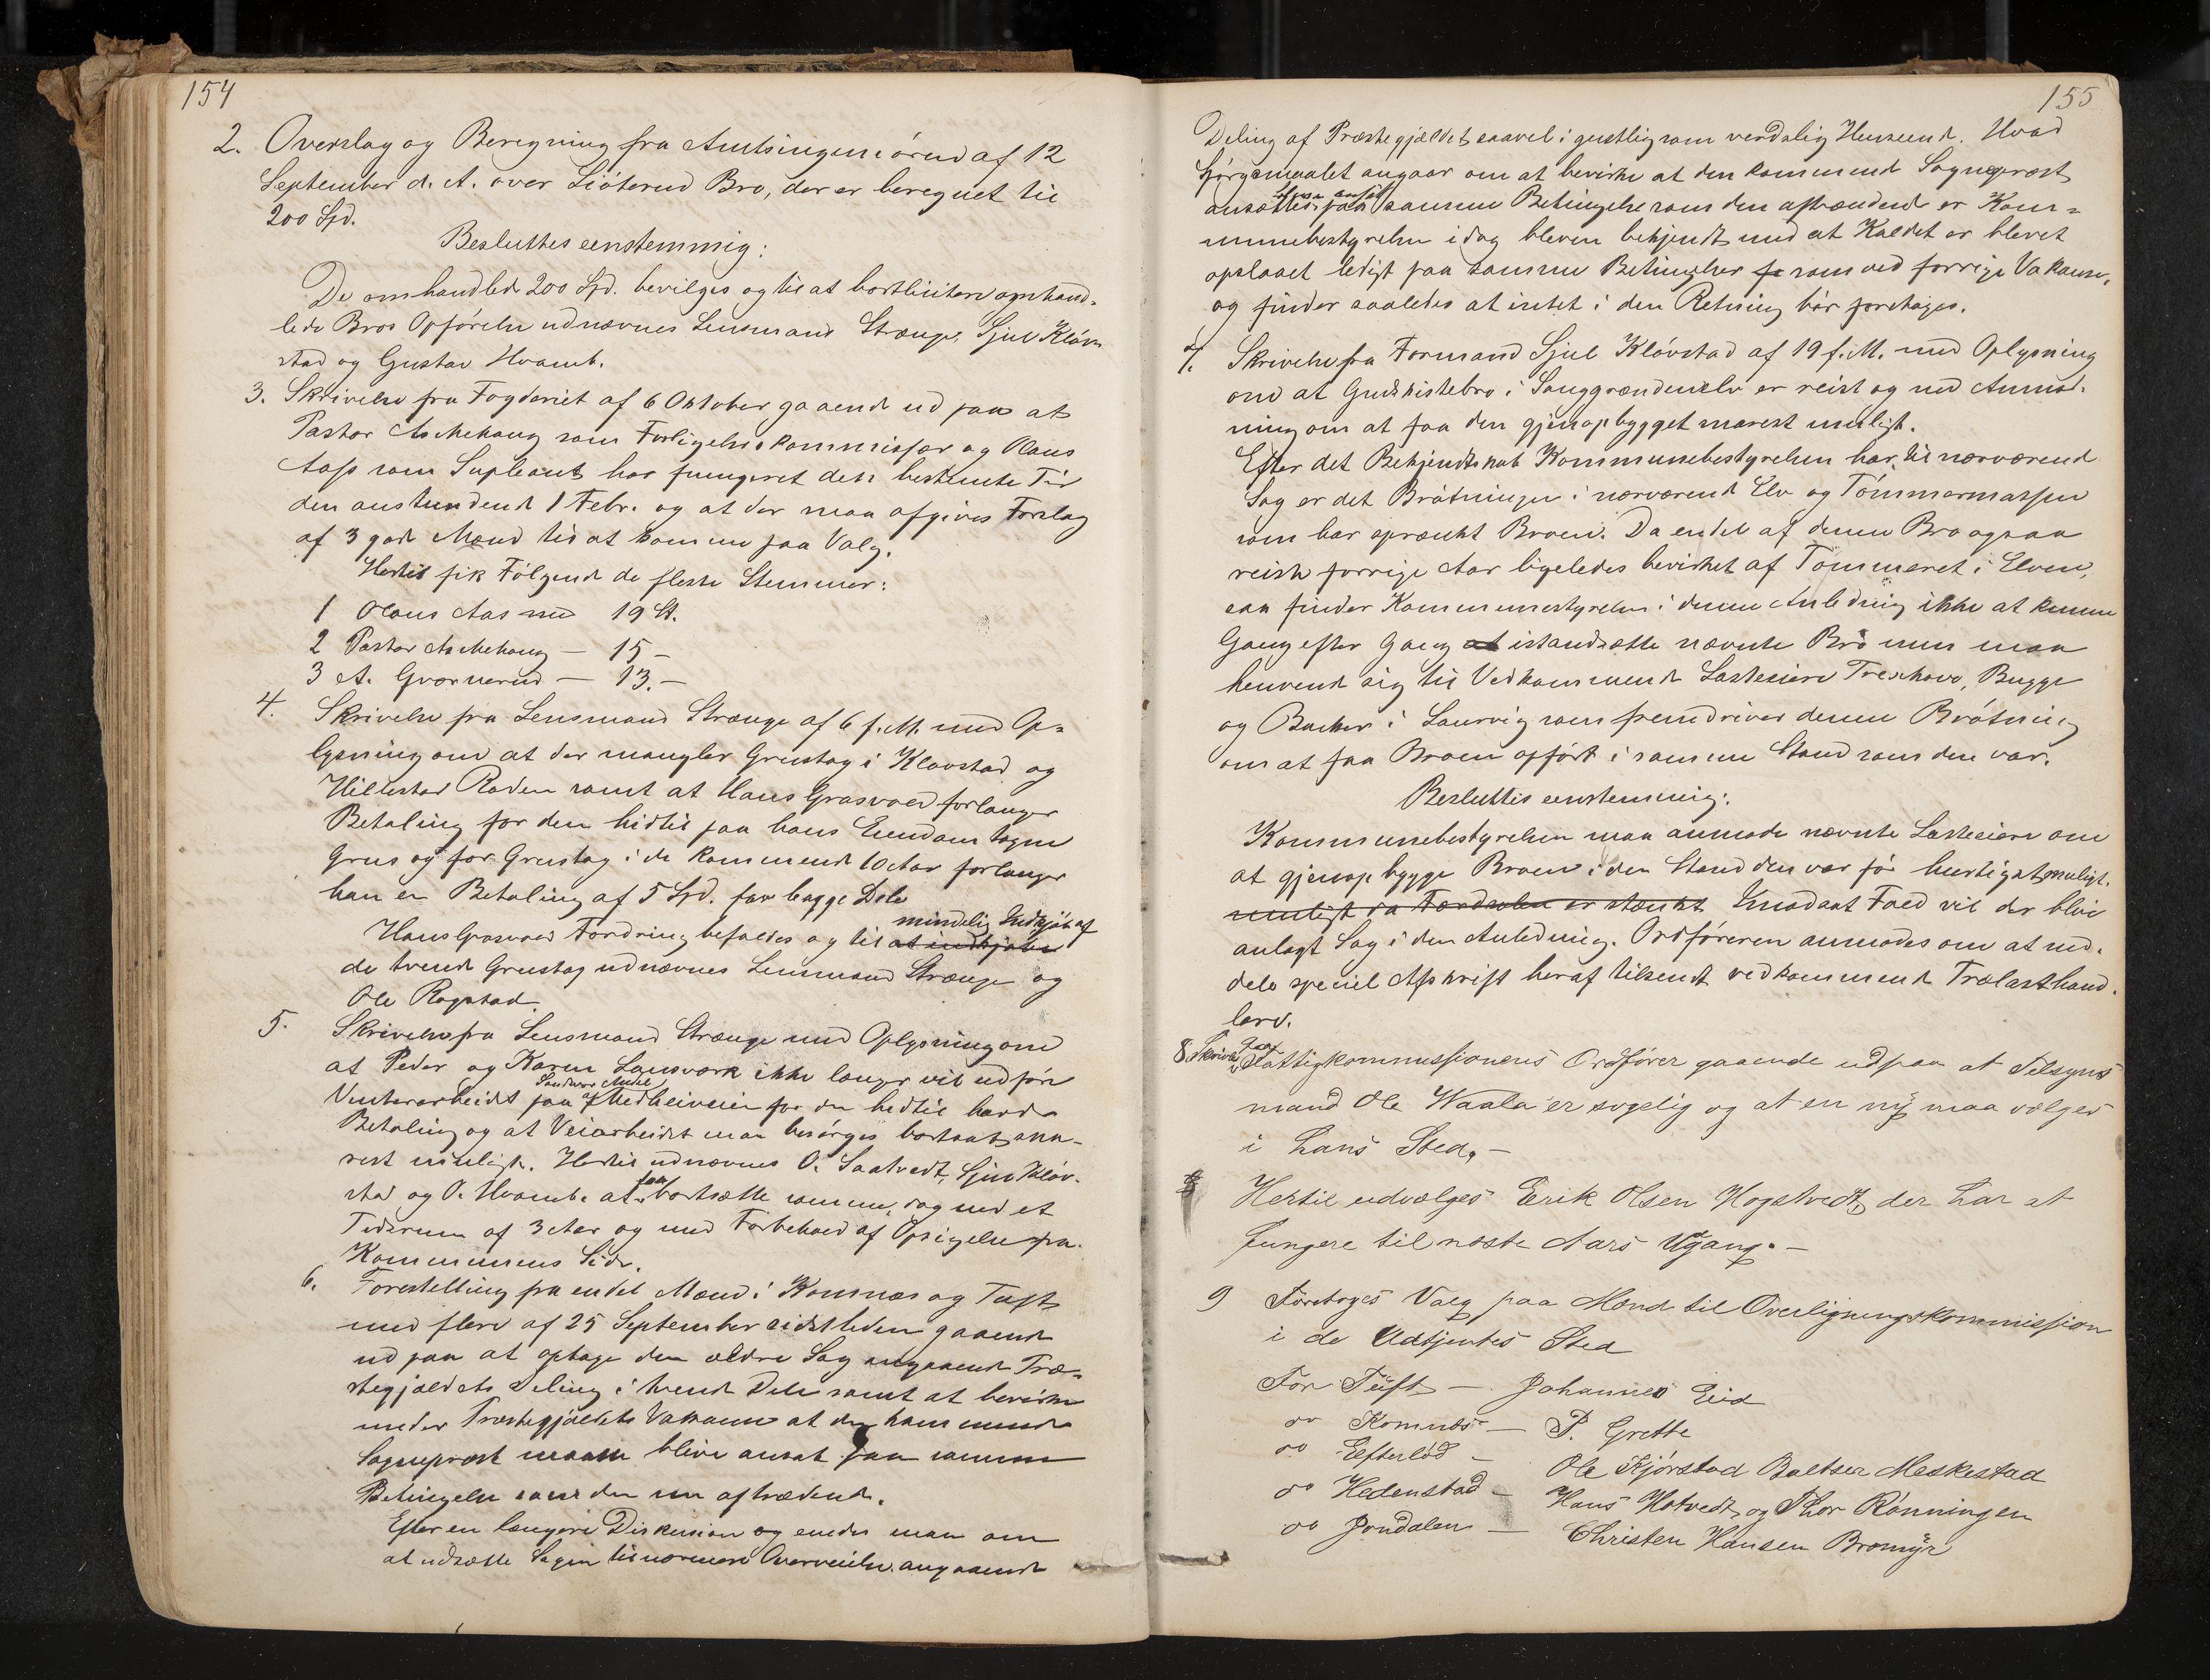 154
2. Overslag og Beregning fra Amtsingeniøren af 12
September d. A. over Liøterud Bro, der er beregnet til
200 Spd.
Besluttes eenstemmig:
De omhandlede 200 Spd. bevilges og til at bortlicitere omhand-
lede Bros Opførelse udnævnes Lensmand Strænge, Sjul Kløv-
stad og Gustav Hvamb.
3. Skrivelse fra Fogderiet af 6 Oktober gaaende ud paa at
Pastor Aschehoug som Forligelseskommissær og Olaus
Aass som Supleant har fungeret den bestemte Tid
den anstundende 1 Febr. og at der maa afgives Forslag
af 3 gode Mænd til at komme paa Valg.
Hertil fik Følgende de fleste Stemmer:
1 Olaus Aas med 19 St.
2 Pastor Aschehoug — 15 —
3 A. Gværnerud — 13. —
4. Skrivelse fra Lensmand Strænge af 6 f. M. med Op-
lysning om at der mangler Grustag i Kløvstad og
Hillestad Roden samt at Hans Grosvold forlanger
Betaling for den hidtil paa hans Eiendom tagne
Grus og for Grustag i de kommende 10 Aar forlanger
han en Betaling af 5 Spd. for begge Dele
mindelig Indkjøb af
Hans Grosvold Fordring befaldes og til at indkjøbe
de tvende Grustag udnævnes Lensmand Strænge og
Ole Rogstad.
5. Skrivelse fra Lensmand Strænge med Oplysning om
at Peder og Karen Lansværk ikke længer vil udføre
Sandsvær Andel
Vinterarbeidet paa af Medheiveien for den hidtil havde
Betaling og at Veiarbeidet maa besørges bortsat sna-
rest muligt. Hertil udnævnes O. Saatvedt, Sjul Kløv-
paa
stad og O. Hvamb. at bortsætte samme, dog med et
Tidsrum af 3 Aar og med Forbehold af Opsigelse fra
Kommunens Side.
6. Forestilling fra endel Mænd i Komnæs og Tuft
med flere af 25 September sidstleden gaaende
ud paa at optage den ældre Sag angaaende Præ-
stegjældets Deling i tvende Dele samt at bevirke
under Præstegjældets Vakance at den kommende
Sogneprest maatte blive ansat paa samme
Betingelse som den nu aftrædende.
Efter en længere Diskusion og enedes man om
at udsætte Sagen til nærmere Overveielse angaaende
155
Deling af Præstegjældet saavel i geistlig som verdslig Henseende. Hvad
Spørgsmaalet angaar om at bevirke at den kommende Sogneprest
ansættes paa samme Betingelse som den aftrædende er Kom-
munebestyrelsen idag bleven bekjendt med at Kaldet er blevet
opslaaet ledigt paa samme Betingelser fo som ved forrige Vakanse,
og finder saaledes at intet i den Retning bør foretages.
7. Skrivelse fra Formand Sjul Kløvstad af 19 f. M. med Oplysning
om at Gudskistebro i Langgrændenselv er reist og med Anmod-
ning om at faa den gjenopbygget snarest muligt.
Efter det Bekjendtskab Kommunebestyrelsen har til nærværende
Sag er det Brøtningen i nærværende Elv og Tømmermassen
som har sprænkt Broen. Da endel af denne Bro ogsaa
reiste forrige Aar ligeledes bevirket af Tømmeret i Elven,
saa finder Kommunestyrelsen i denne Anledning ikke at kunne
Gang efter Gang at istandsætte nævnte Bro men maa
henvende sig til Vedkommende Lasteeiere Treschow, Bugge
og Backer i Laurvig som fremdriver denne Brøtning
om at faa Broen opført i samme Stand som den var.
Besluttes eenstemmig:
Kommunebestyrelsen maa anmode nævnte Lasteeiere om
at gjenopbygge Broen i den Stand den var før hurtigst muligt.
muligt da Færdselen er stænkt Imodsat Fald vil der blive
anlagt Sag i den Anledning. Ordføreren anmodes om at med-
dele speciel Afskrift heraf tilsendt vedkommende Trælasthand-
lere.
8. Skrivelse fra Fattigkommissionens Ordfører gaaende ud paa at Tilsyns
mand Ole Waala er sygelig og at en ny maa vælges
i hans Sted. —
Hertil udvælges Eerik Olsen Hogstvedt, der har at
fungere til næste Aars Udgang. —
9 Foretoges Valg paa Mænd til Overligningskommission
i de Udtjentes Sted
For Tuft — Johannes Eid
do Komnæs — P. Grette
do Eefterlød — Ole Kjørstad Baltser Meskestad
do Hedenstad — Hans Hotvedt og Thor Rønningen
do Jondalen — Christen Hansen Bromyr